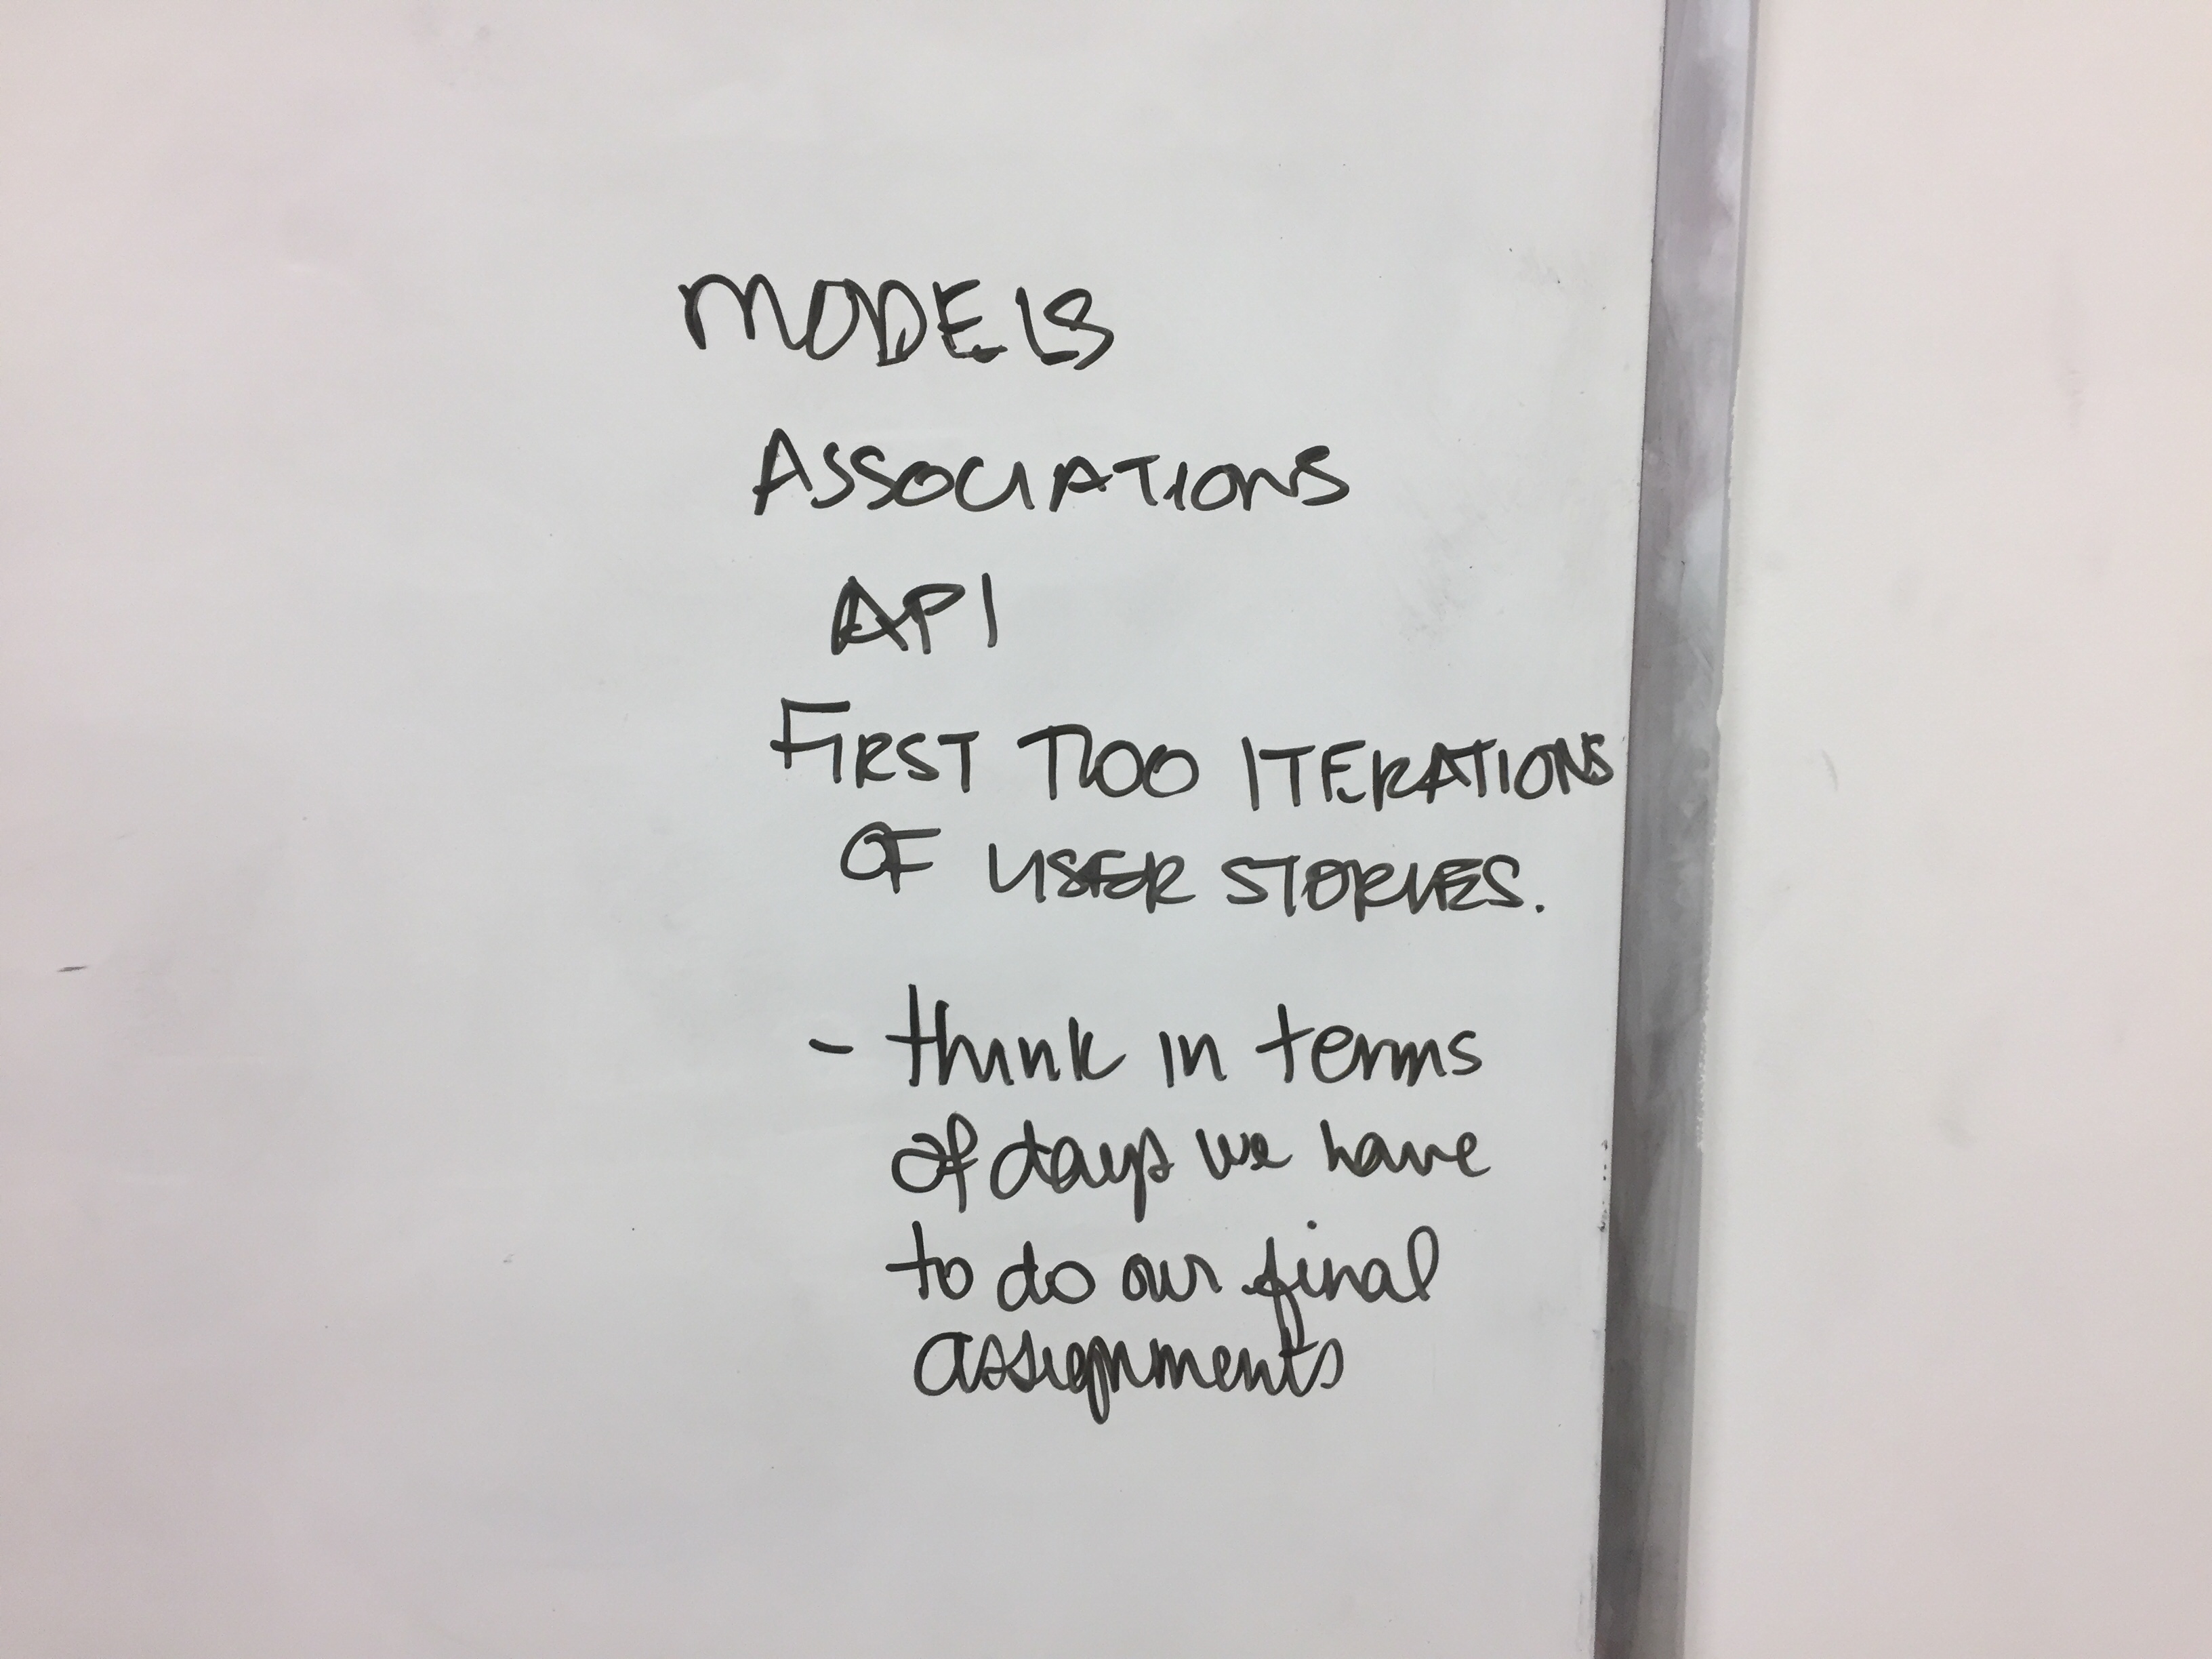 MODELS
ASSOCIATIONS
API
FIRST TWO ITERATIONS
OF USER STORIES.
- think in terms
of days we have
to do our final
assignments